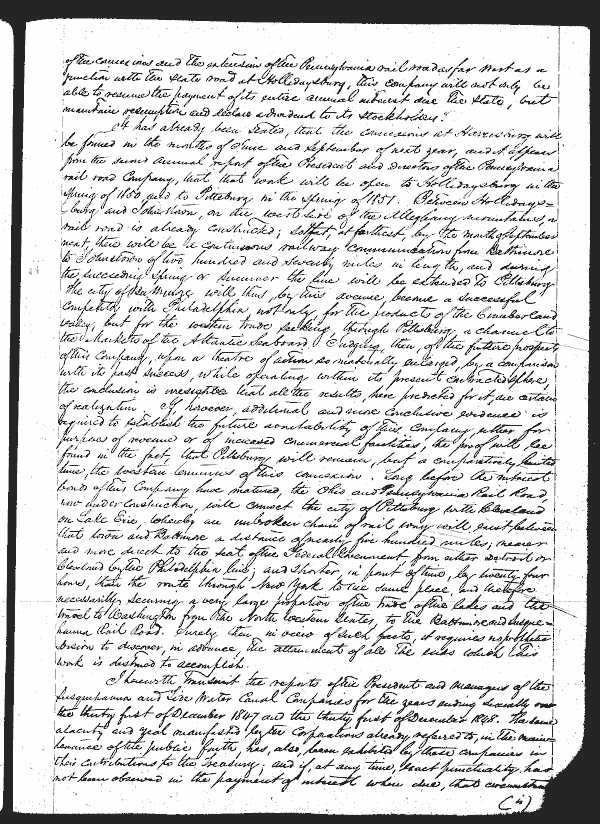 of the connexions and the extension of the Pennsylvania rail road as far West as a
junction with the State road at Hollidaysburg, this company will not only be
able to resume the payment of its entire annual interest due the State, but
maintain resumption and declare a dividend to its stockholders."
It has already been stated, that the connexions at Harrisburg will
be formed in the months of June and September of next year, and it appears
from the second annual report of the President and directors of the Pennsylvania
rail road Company, that that work will be open to Hollidaysburg in the
Spring of 1850, and to Pittsburg in the Spring of 1851. Between Hollidays-
burg and Johnstown, on the west side of the Alleghany mountains, a
rail road is already constructed; so that, at farthest, by the month of September
next, there will be a continuous railway communication from Baltimore
to Johnstown of two hundred and seventy miles in length, and during
the succeeding Spring or summer the line will be extended to Pittsburg.
The city of Baltimore will thus, by this avenue, become a successful
competitor with Philadelphia not only, for the products of the Cumberland
valley; but for the western trade seeking, through Pittsburg, a channel to
the Markets of the Atlantic seaboard. Judging, then, of the future prospects
of this Company, upon a theatre of action so materially enlarged, by a comparison
with its past success, while operating within its present contracted sphere,
the conclusion is irresistible that all the results, here predicted for it, are certain
of realization. If, however, additional and more conclusive evidence is
required to establish the future availability of this Company, either for
purposes of revenue or of increased commercial facilities, the proof will be
found in the fact, that Pittsburg will remain, but a comparatively limited
time, the western terminus of this connexion. Long before the interest
bonds of this Company have matured, the Ohio and Pennsylvania Rail Road,
now under construction, will connect the city of Pittsburg with Cleveland
on Lake Erie, whereby an unbroken chain of rail way will exist between
that town and Baltimore a distance of nearly five hundred miles; nearer
and more direct to the seat of the Federal Government from either Detroit or
Cleveland by the Philadelphia line; and shorter, in point of time, by twenty four
hours, than the route through New York to the same place, and therefore
necessarily securing a very large proportion of the trade of the lakes and the
travel to Washington from the North Western States, to the Baltimore and Susque-
hanna Rail Road. Surely then in view of such facts, it requires no prophetic
vision to discover, in advance, the attainment of all the ends which this
work is destined to accomplish.
I herewith transmit the reports of the President and managers of the
Susquehanna and Tide Water Canal Companies for the years ending severally on
the thirty first of December 1847 and the thirty first of December 1848. The same
alacrity and zeal manifested by the Corporations already referred to, in the main-
tenance of the public faith has, also, been exhibited by these companies in
their contributions to the treasury; and if, at any time, exact punctuality has
not been observed in the payment of interest when due, that circumstance